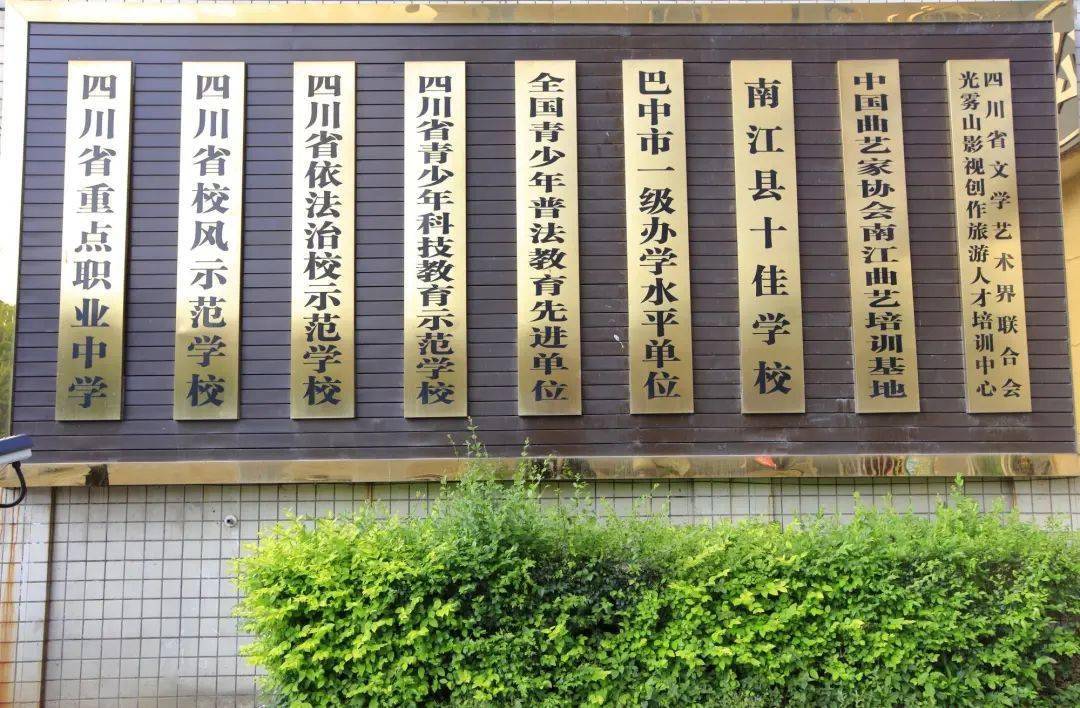 四川省重点职业中学
四川省校风示范学校
四川省依法治校示范学校
四川省青少年科技教育示范学校
全国青少年普法教育先进单位
巴中市一级办学水平单位
南江县十佳学校
中国曲艺家协会南江曲艺培训基地
四川省文学艺术界联合会
光雾山影视创作旅游人才培训中心